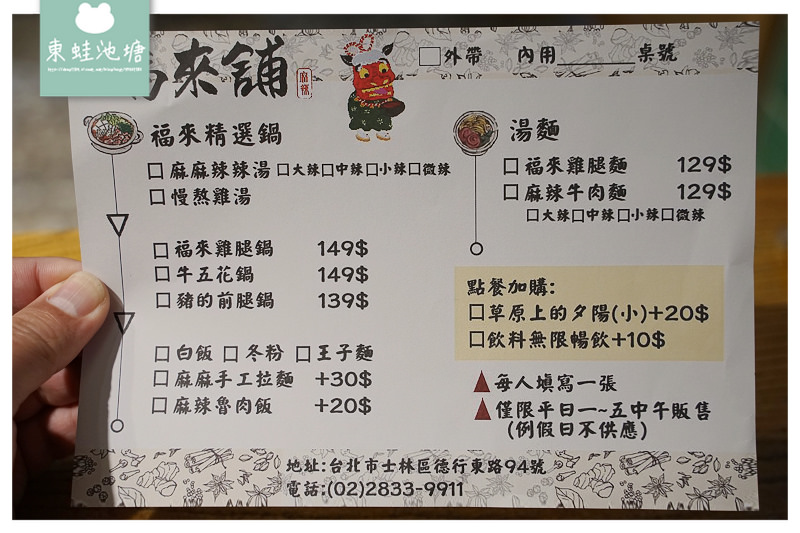 東蛙池塘
來舖
□外帶 內用______桌號
福來精選鍋
□麻麻辣辣湯 □大辣□中辣□小辣□微辣
□慢熬雞湯
□福來雞腿鍋 149$
□牛五花鍋 149$
□豬的前腿鍋 139$
□白飯 □冬粉 □王子麵
□麻麻手工拉麵 +30$
□麻辣魯肉飯 +20$
湯麵
□福來雞腿麵 129$
□麻辣牛肉麵 129$
□大辣□中辣□小辣□微辣
點餐加購:
□草原上的夕陽(小)+20$
□飲料無限暢飲+10$
▲每人填寫一張
▲僅限平日一~五中午販售
(例假日不供應)
地址:台北市士林區德行東路94號
電話:(02)2833-9911